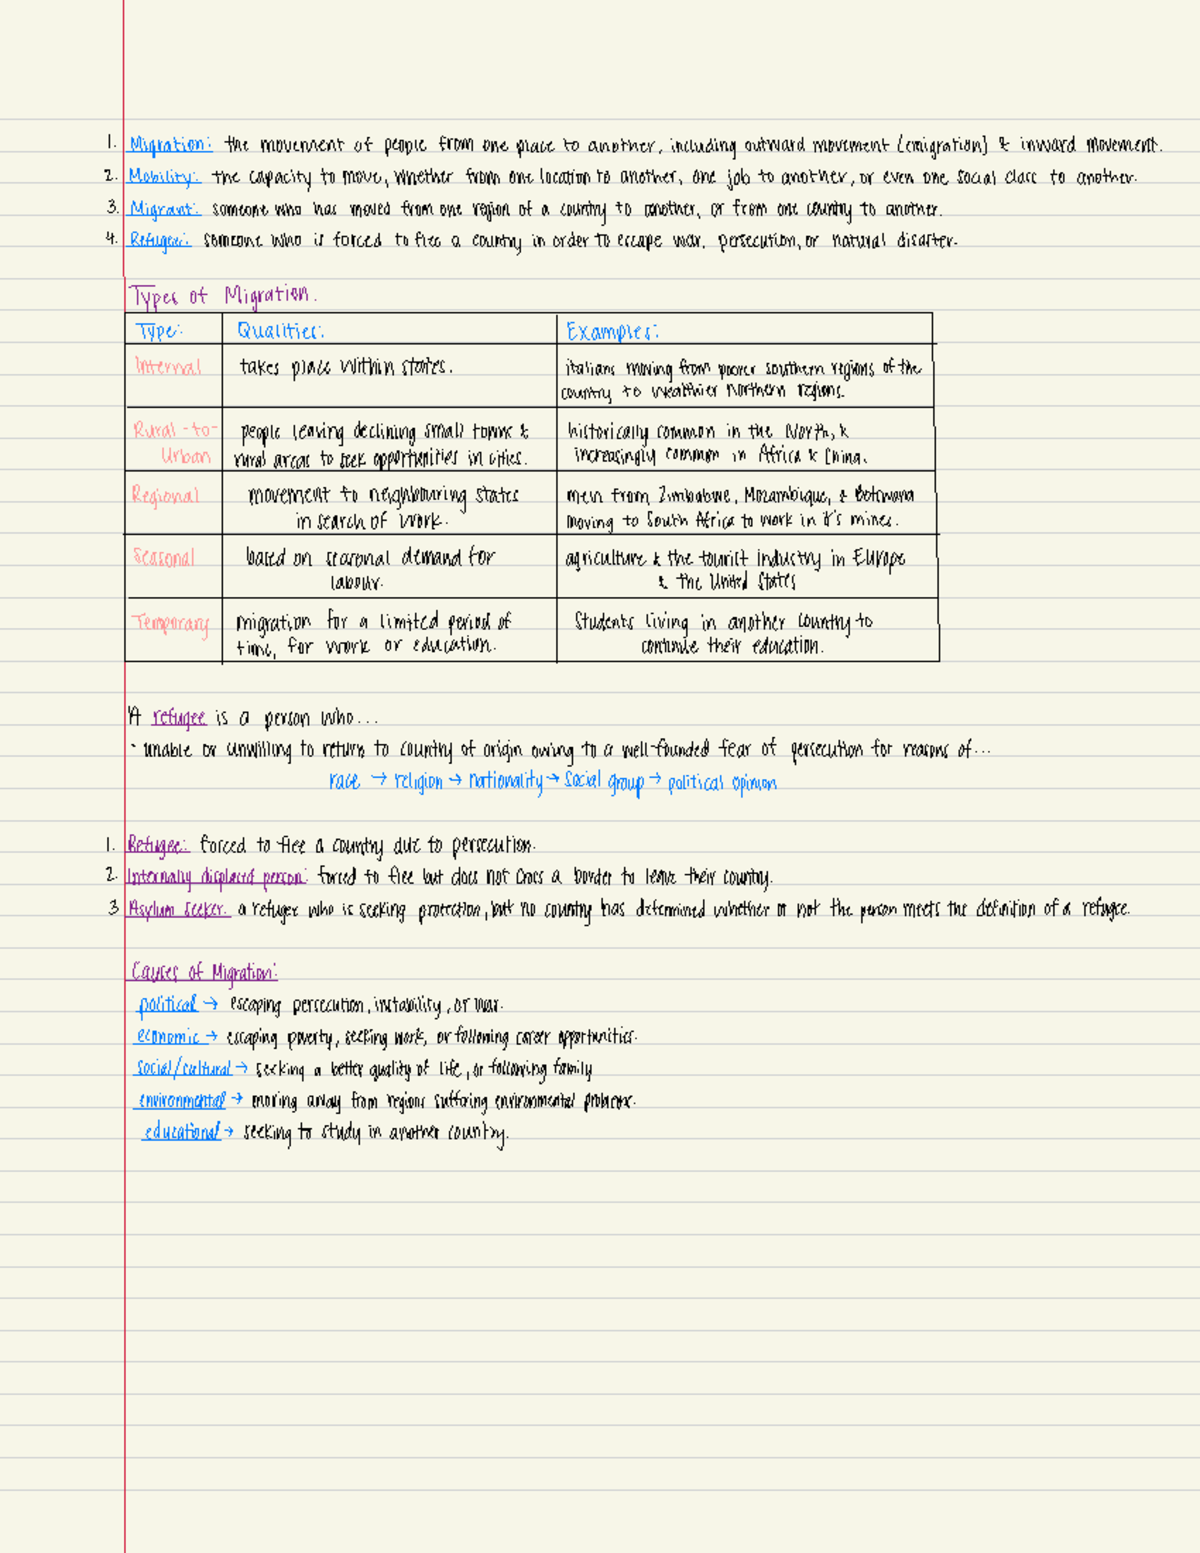 1. Migration: the movement of people from one place to another, including outward movement (emigration) & inward movement.
2. Mobility: the capacity to move, whether from one location to another, one job to another, or even one social class to another.
3. Migrant: someone who has moved from one region of a country to another, or from one country to another.
4. Refugee: someone who is forced to flee a country in order to escape war, persecution, or natural disaster.
Types of Migration.
Type: Qualities: Examples:
Internal takes place within states. italians moving from poorer southern regions of the
country to wealthier northern regions.
Rural-to- people leaving declining small towns & historically common in the North, &
Urban rural areas to seek opportunities in cities. increasingly common in Africa & China.
Regional movement to neighbouring states men from Zimbabwe, Mozambique, & Botswana
in search of work. moving to South Africa to work in it's mines.
Seasonal based on seasonal demand for agriculture & the tourist industry in Europe
labour. & the United States
Temporary migration for a limited period of Students living in another country to
time, for work or education. continue their education.
A refugee is a person who...
· unable or unwilling to return to country of origin owing to a well-founded fear of persecution for reasons of...
race → religion → nationality → social group → political opinion
1. Refugee: forced to flee a country due to persecution.
2. Internally displaced person: forced to flee but does not cross a border to leave their country.
3 Asylum Seeker: a refugee who is seeking protection, but no country has determined whether or not the person meets the definition of a refugee.
Causes of Migration:
political → escaping persecution, instability, or war.
economic → escaping poverty, seeking work, or following career opportunities.
social/cultural → seeking a better quality of life, or following family
environmental → moving away from regions suffering environmental problems.
educational → seeking to study in another country.